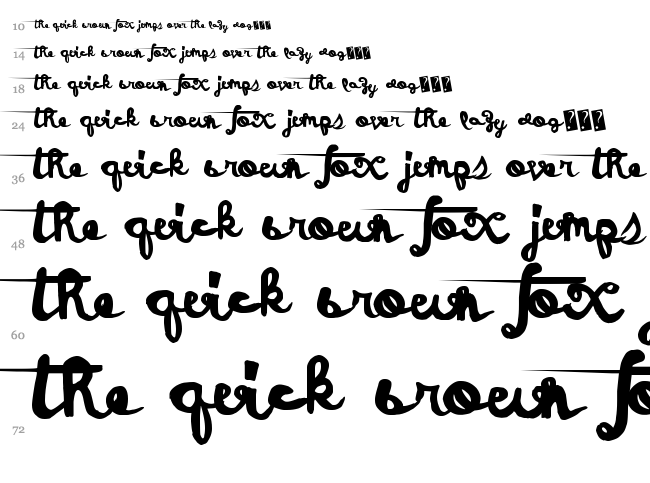 10 the quick brown fox jumps over the lazy dog
14 the quick brown fox jumps over the lazy dog
18 the quick brown fox jumps over the lazy dog
24 the quick brown fox jumps over the lazy dog
36 the quick brown fox jumps over the
48 the quick brown fox jumps
60 the quick brown fox
72 the quick brown fo